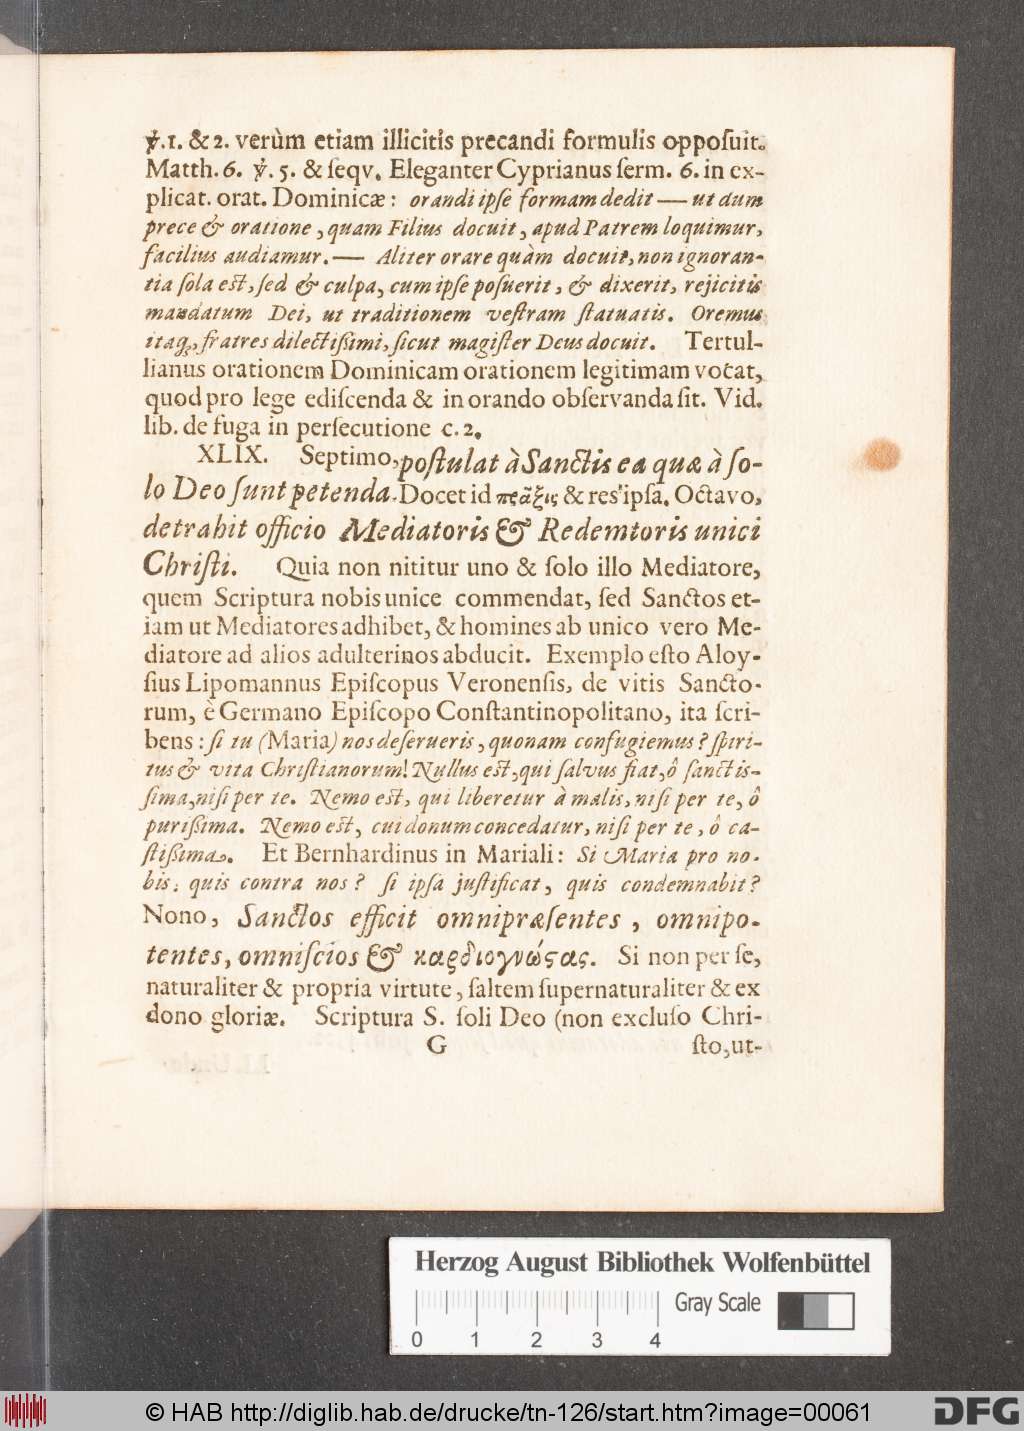 ꝟ. 1. & 2. verùm etiam illicitis precandi formulis oppoſuit.
Matth. 6. ꝟ. 5. & ſeqv. Eleganter Cyprianus ſerm. 6. in ex-
plicat. orat. Dominicæ: orandi ipſe formam dedit — ut dum
prece & oratione, quam Filius docuit, apud Patrem loquimur,
facilius audiamur. — Aliter orare quàm docuit, non ignoran-
tia ſola eſt, ſed & culpa, cum ipſe poſuerit, & dixerit, rejicitis
mandatum Dei, ut traditionem veſtram ſtatuatis. Oremus
itaq;, fratres dilectißimi, ſicut magiſter Deus docuit. Tertul-
lianus orationem Dominicam orationem legitimam vocat,
quod pro lege ediſcenda & in orando obſervanda ſit. Vid.
lib. de fuga in perſecutione c. 2.
XLIX. Septimo, poſtulat à Sanctis ea quæ à ſo-
lo Deo ſunt petenda. Docet id πρᾶξις & res ipſa. Octavo,
detrahit officio Mediatoris & Redemtoris unici
Chriſti. Quia non nititur uno & ſolo illo Mediatore,
quem Scriptura nobis unice commendat, ſed Sanctos et-
iam ut Mediatores adhibet, & homines ab unico vero Me-
diatore ad alios adulterinos abducit. Exemplo eſto Aloy-
ſius Lipomannus Epiſcopus Veronenſis, de vitis Sancto-
rum, è Germano Epiſcopo Conſtantinopolitano, ita ſcri-
bens: ſi tu (Maria) nos deſerueris, quonam confugiemus? ſpiri-
tus & vita Chriſtianorum! Nullus eſt, qui ſalvus fiat, ô ſanctis-
ſima, niſi per te. Nemo eſt, qui liberetur à malis, niſi per te, ô
purißima. Nemo eſt, cui donum concedatur, niſi per te, ô ca-
ſtißima. Et Bernhardinus in Mariali: Si Maria pro no-
bis, quis contra nos? ſi ipſa juſtificat, quis condemnabit?
Nono, Sanctos efficit omnipræſentes, omnipo-
tentes, omniſcios & καρδιογνώςας. Si non per ſe,
naturaliter & propria virtute, ſaltem ſupernaturaliter & ex
dono gloriæ. Scriptura S. ſoli Deo (non excluſo Chri-
G ſto, ut-
Herzog August Bibliothek Wolfenbüttel
Gray Scale
0 1 2 3 4
© HAB http://diglib.hab.de/drucke/tn-126/start.htm?image=00061
DFG